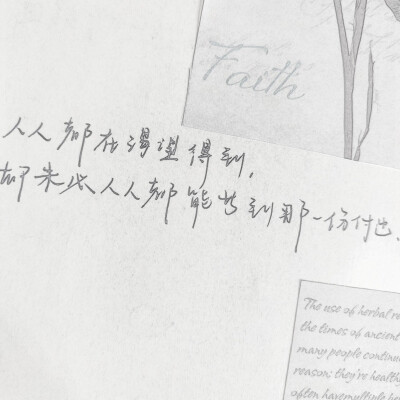 Faith
人人都在渴望得到,
却未必人人都能到那一份付出.
The use of herbal re
the times of ancient
many people continu
reason: they're health
often havemultiple